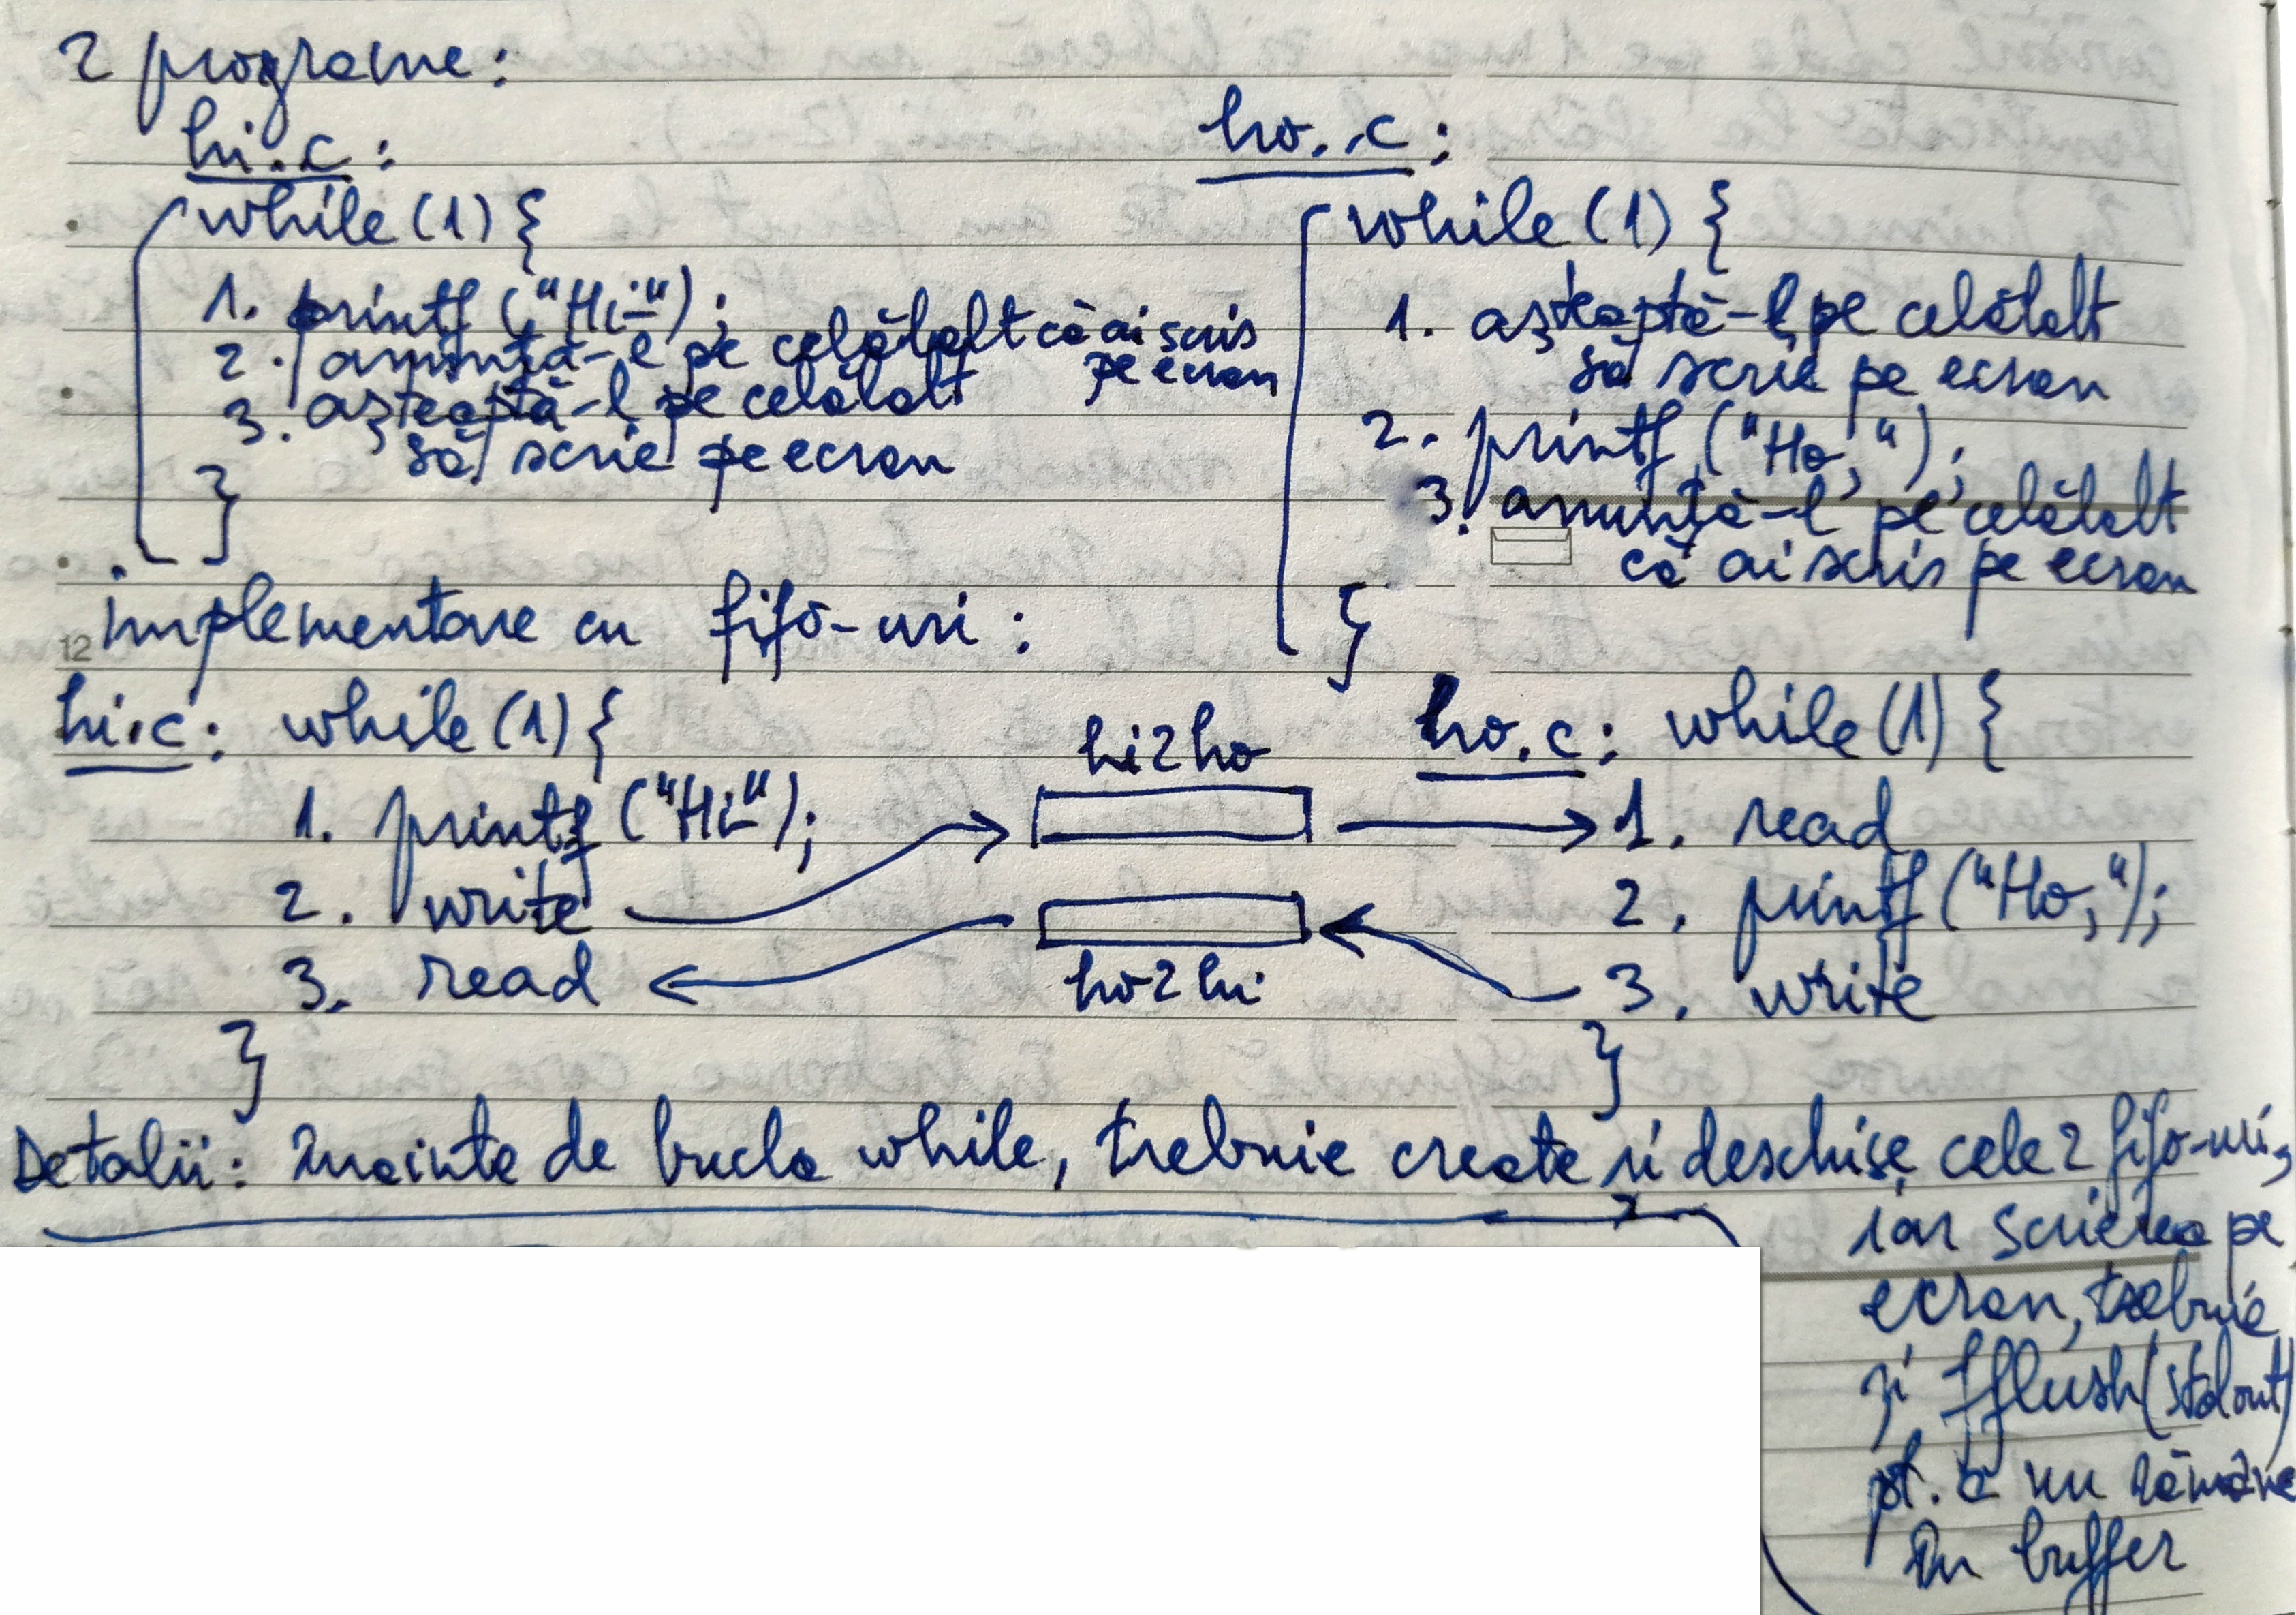 2 programe:
hi.c:
while(1){
1. printf("Hi-");
2. anunță-l pe celălalt că ai scris
pe ecran
3. așteaptă-l pe celălalt
să scrie pe ecran
}
ho.c:
while(1){
1. așteaptă-l pe celălalt
să scrie pe ecran
2. printf("Ho,");
3. anunță-l pe celălalt
că ai scris pe ecran
}
12
implementare cu fifo-uri:
hi.c: while(1){
1. printf("Hi-");
2. write
3. read
}
hi2ho
ho2hi
ho.c: while(1){
1. read
2. printf("Ho,");
3. write
}
Detalii: înainte de bucla while, trebuie create și deschise cele 2 fifo-uri,
iar scrierea pe
ecran, trebuie
și fflush(stdout)
pt. a nu rămâne
în buffer